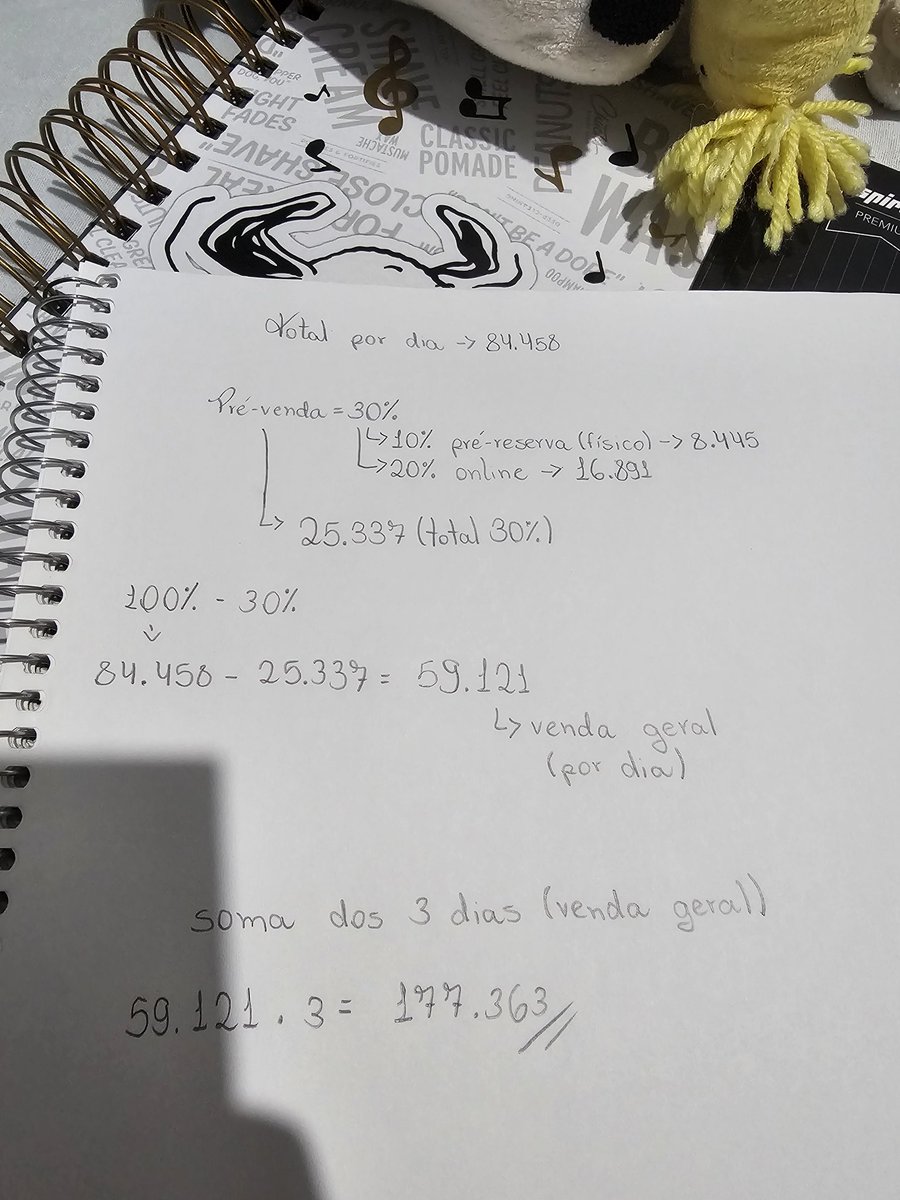 SHINE
CREAM
MUSTACHE
WAX
CLASSIC
POMADE
FADES
CLOSE SHAVE"
FOR
REAL
PREMIU
Total por dia -> 84.458
Pré-venda = 30%
↳ 10% pré-reserva (físico) -> 8.445
↳ 20% online -> 16.891
↳ 25.337 (total 30%)
100% - 30%
84.458 - 25.337 = 59.121
↳ venda geral
(por dia)
soma dos 3 dias (venda geral)
59.121 . 3 = 177.363//